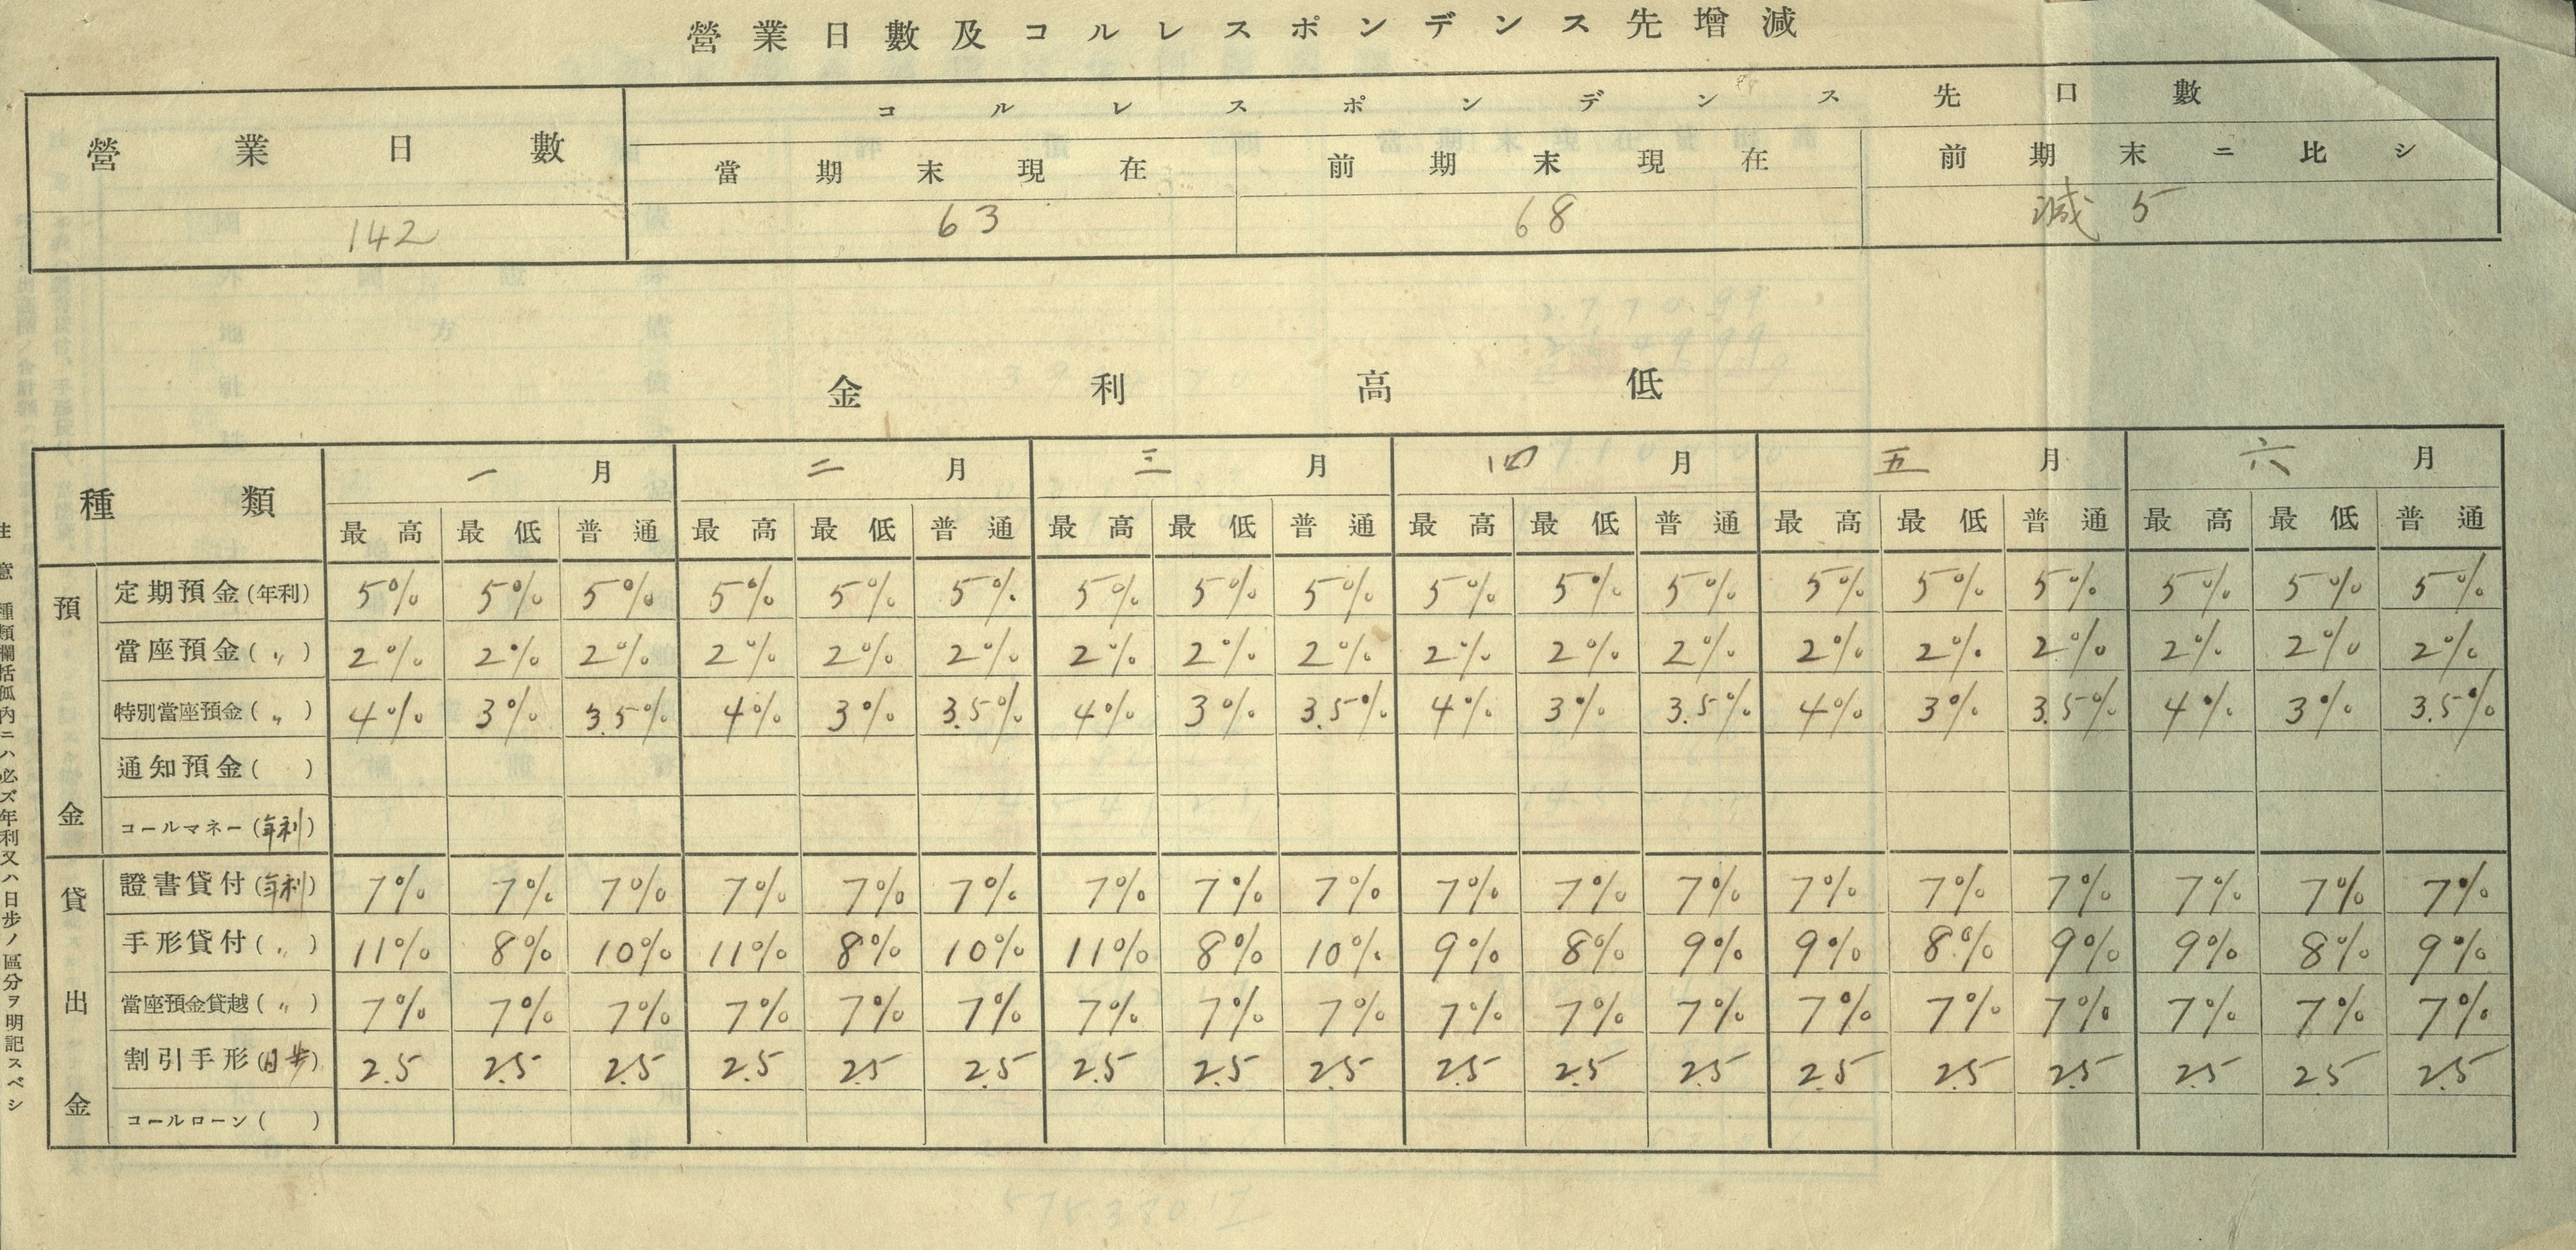 營業日數及コルレスポンデンス先增減
營業日數 コルレスポンデンス先口數
當期末現在 前期末現在 前期末ニ比シ
142 63 68 減 5
金利高低
種類 一月 二月 三月 四月 五月 六月
最高 最低 普通 最高 最低 普通 最高 最低 普通 最高 最低 普通 最高 最低 普通 最高 最低 普通
預金
定期預金(年利) 5% 5% 5% 5% 5% 5% 5% 5% 5% 5% 5% 5% 5% 5% 5% 5% 5% 5%
當座預金(〃) 2% 2% 2% 2% 2% 2% 2% 2% 2% 2% 2% 2% 2% 2% 2% 2% 2% 2%
特別當座預金(〃) 4% 3% 3.5% 4% 3% 3.5% 4% 3% 3.5% 4% 3% 3.5% 4% 3% 3.5% 4% 3% 3.5%
通知預金( )
コールマネー(年利)
貸出金
證書貸付(年利) 7% 7% 7% 7% 7% 7% 7% 7% 7% 7% 7% 7% 7% 7% 7% 7% 7% 7%
手形貸付(〃) 11% 8% 10% 11% 8% 10% 11% 8% 10% 9% 8% 9% 9% 8% 9% 9% 8% 9%
當座預金貸越(〃) 7% 7% 7% 7% 7% 7% 7% 7% 7% 7% 7% 7% 7% 7% 7% 7% 7% 7%
割引手形(日步) 2.5 2.5 2.5 2.5 2.5 2.5 2.5 2.5 2.5 2.5 2.5 2.5 2.5 2.5 2.5 2.5 2.5 2.5
コールローン( )
注意 種類欄括弧內ニハ必ズ年利又ハ日步ノ區分ヲ明記スベシ